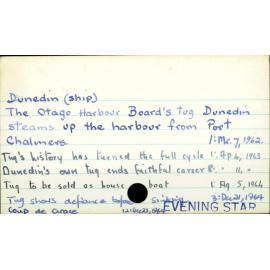 Dunedin (ship)
The Otago Harbour Board's tug Dunedin
steams up the harbour from Port
Chalmers 1: Mr. 7, 1962
Tug's history has turned the full cycle 1: Ap 4, 1963
Dunedin's own tug ends faithful career 8: " 11, "
Tug to be sold as house boat 1: Ag 5, 1964
Tug shows defiance before sinking 3: Dec 21, 1964
Coup de Grace 12: Dec 23, 1964 EVENING STAR